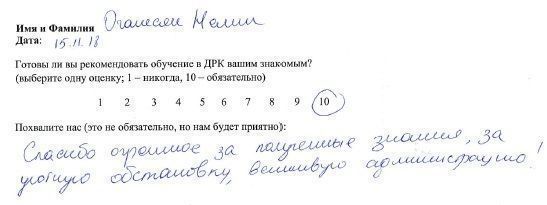 Имя и Фамилия Оганесян Нелли
Дата: 15.11.18
Готовы ли вы рекомендовать обучение в ДРК вашим знакомым?
(выберите одну оценку; 1 – никогда, 10 – обязательно)
1 2 3 4 5 6 7 8 9 10
Похвалите нас (это не обязательно, но нам будет приятно):
Спасибо огромное за полученные знания, за
уютную обстановку, вежливую администрацию!